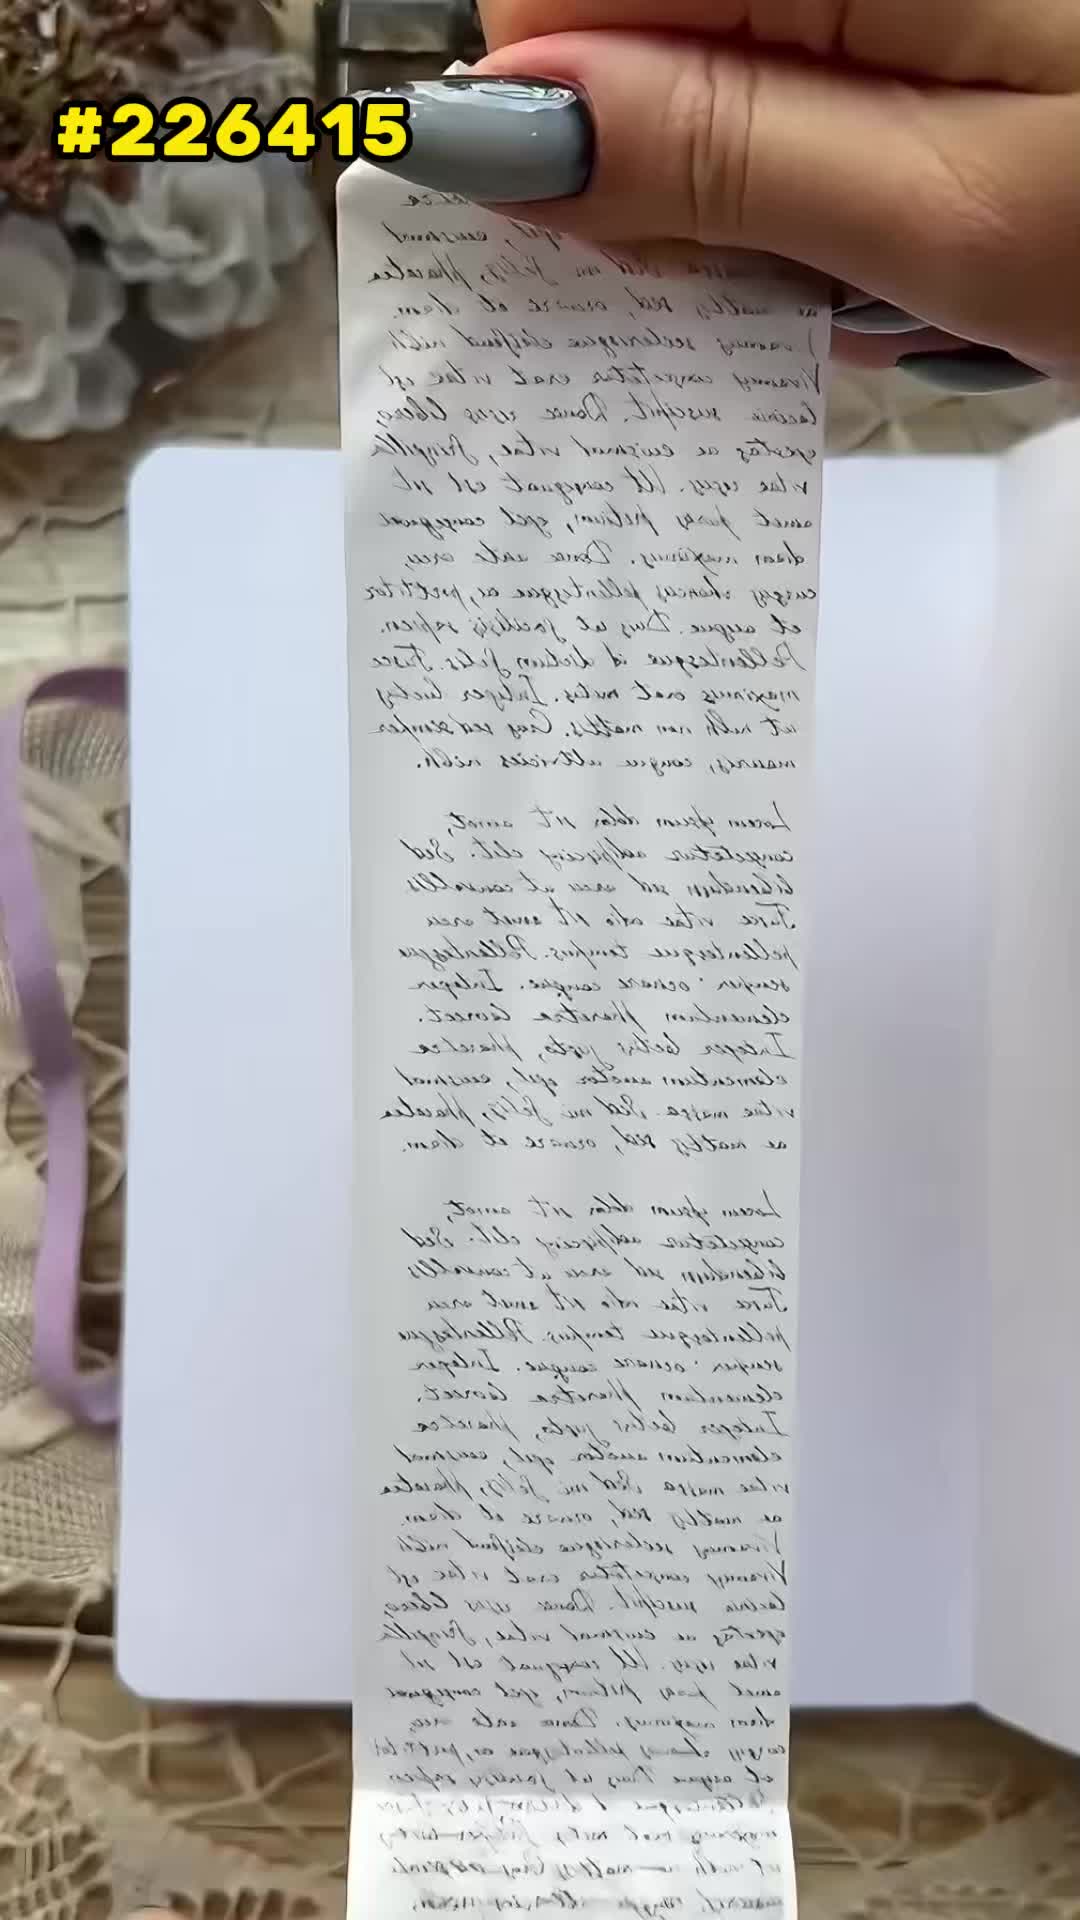 #226415
pharetra
eget, euismod
massa. Sed mi felis, pharetra
ac mattis sed, ornare et diam.
Vivamus scelerisque eleifend nibh
Vivamus consectetur erat vitae est
lacinia suscipit. Donec eros libero,
egestas ac euismod vitae, fringilla
vitae risus. Ut consequat est sit
amet purus pretium, eget consequat
diam maximus. Donec ante arcu,
cursus rhoncus pellentesque ac, porttitor
et augue. Duis ut facilisis sapien.
Pellentesque id dictum felis. Fusce
maximus erat metus. Integer luctus
ut nibh non mattis. Cras sed semper
mauris, congue ultricies nibh.
Lorem ipsum dolor sit amet,
consectetur adipiscing elit. Sed
bibendum sed arcu ut convallis.
Fusce vitae odio sit amet arcu
pellentesque tempus. Pellentesque
semper ornare congue. Integer
elementum pharetra laoreet.
Integer lectus justo, pharetra
elementum auctor eget, euismod
vitae massa. Sed mi felis, pharetra
ac mattis sed, ornare et diam.
Lorem ipsum dolor sit amet,
consectetur adipiscing elit. Sed
bibendum sed arcu ut convallis
Fusce vitae odio sit amet arcu
pellentesque tempus. Pellentesque
semper ornare congue. Integer
elementum pharetra laoreet.
Integer lectus justo, pharetra
elementum auctor eget, euismod
vitae massa. Sed mi felis, pharetra
ac mattis sed, ornare et diam.
Vivamus scelerisque eleifend nibh
Vivamus consectetur erat vitae est
lacinia suscipit. Donec eros libero,
egestas ac euismod vitae, fringilla
vitae risus. Ut consequat est sit
amet purus pretium, eget consequat
diam maximus. Donec ante arcu,
cursus rhoncus pellentesque ac, porttitor
et augue. Duis ut facilisis sapien